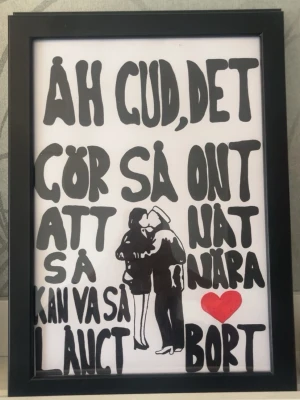 ÅH GUD, DET
GÖR SÅ ONT
ATT NÅT
SÅ NÄRA
KAN VA SÅ
LÅNGT BORT